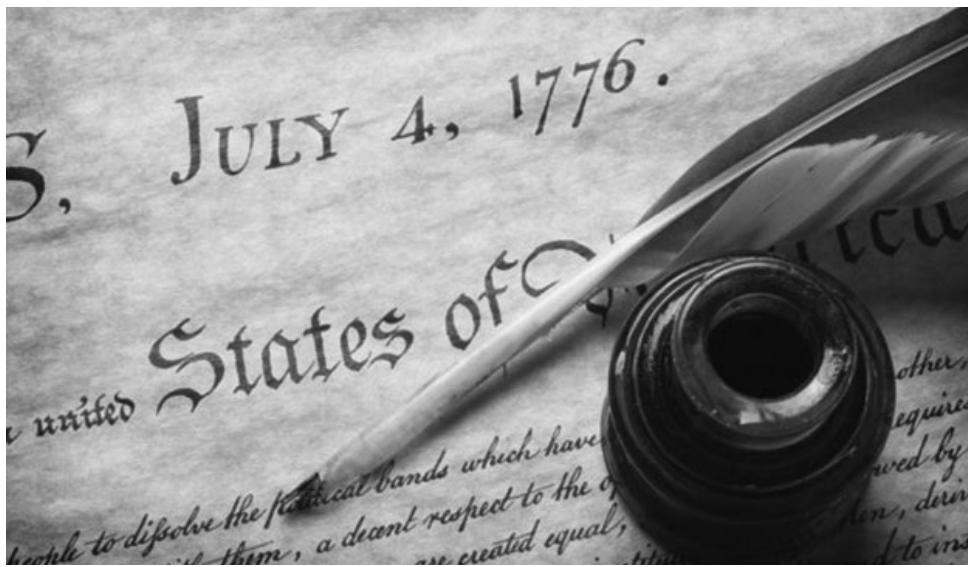 S, JULY 4, 1776.
united States of
people to dissolve the political bands which have other,
them, a decent respect to the requires
are created equal, owed by
deri
to ins